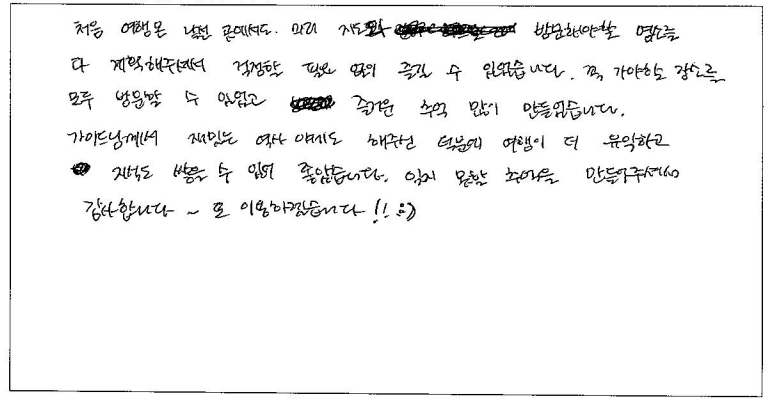 처음 여행온 낯선 곳에서도. 미리 지도로 방문해야할 명소를
다 계획해주셔서 걱정할 필요 없이 즐길 수 있었습니다. 꼭 가야하는 장소를
모두 방문할 수 있었고 즐거운 추억 많이 만들었습니다.
가이드님께서 재밌는 역사 얘기도 해주신 덕분에 여행이 더 유익하고
지식도 쌓을 수 있어 좋았습니다. 잊지 못할 추억을 만들어주셔서
감사합니다 ~ 또 이용하겠습니다!! :)